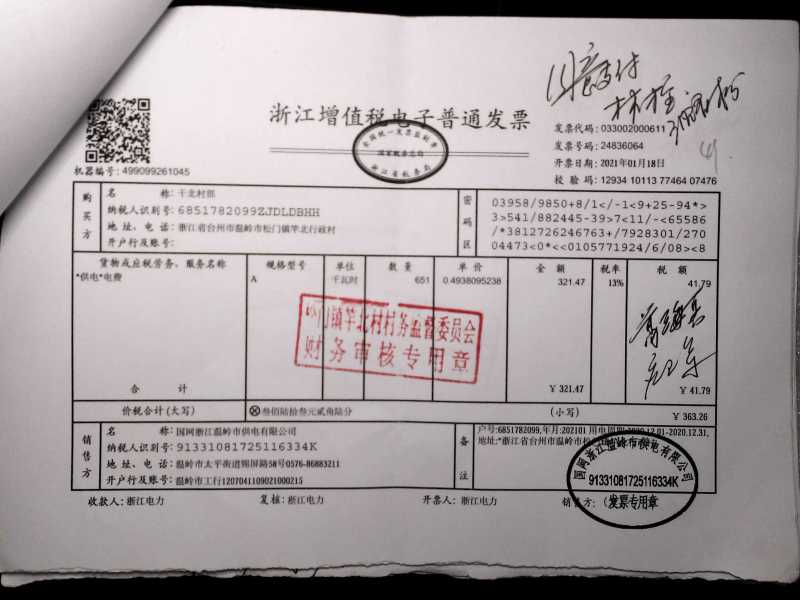 浙江增值税电子普通发票
全国统一发票监制章
国家税务总局
浙江省税务局
发票代码: 033002000611
发票号码: 24836064
开票日期: 2021年01月18日
校验码: 12934 10113 77464 07476
机器编号: 499099261045
购买方
名称: 干北村部
纳税人识别号: 6851782099ZJDLDBHH
地址、电话: 浙江省台州市温岭市松门镇竿北行政村
开户行及账号:
密码区
03958/9850+8/1</-1<9+25-94*>
3>541/882445-39>7<11/-<65586
/*3812726246763+/7928301/270
04473<0*<<0105771924/6/08><8
货物或应税劳务、服务名称 规格型号 单位 数量 单价 金额 税率 税额
*供电*电费 A 千瓦时 651 0.4938095238 321.47 13% 41.79
松门镇竿北村村务监督委员会
财务审核专用章
合计 ¥ 321.47 ¥ 41.79
价税合计(大写) ⊗叁佰陆拾叁元贰角陆分 (小写) ¥ 363.26
销售方
名称: 国网浙江温岭市供电有限公司
纳税人识别号: 91331081725116334K
地址、电话: 温岭市太平街道锦屏路5号0576-86883211
开户行及账号: 温岭市工行1207041109021000215
备注
户号:6851782099,年月:202101 用电周期:2020.12.01-2020.12.31,
地址:*浙江省台州市温岭市松
国网浙江温岭市供电有限公司
91331081725116334K
发票专用章
收款人: 浙江电力 复核: 浙江电力 开票人: 浙江电力 销售方: (